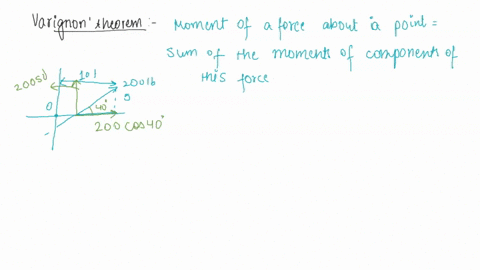 Varignon' theorem :- Moment of a force about a point =
sum of the moments of components of
this force
10'
200 lb
0
40°
200 cos 40°